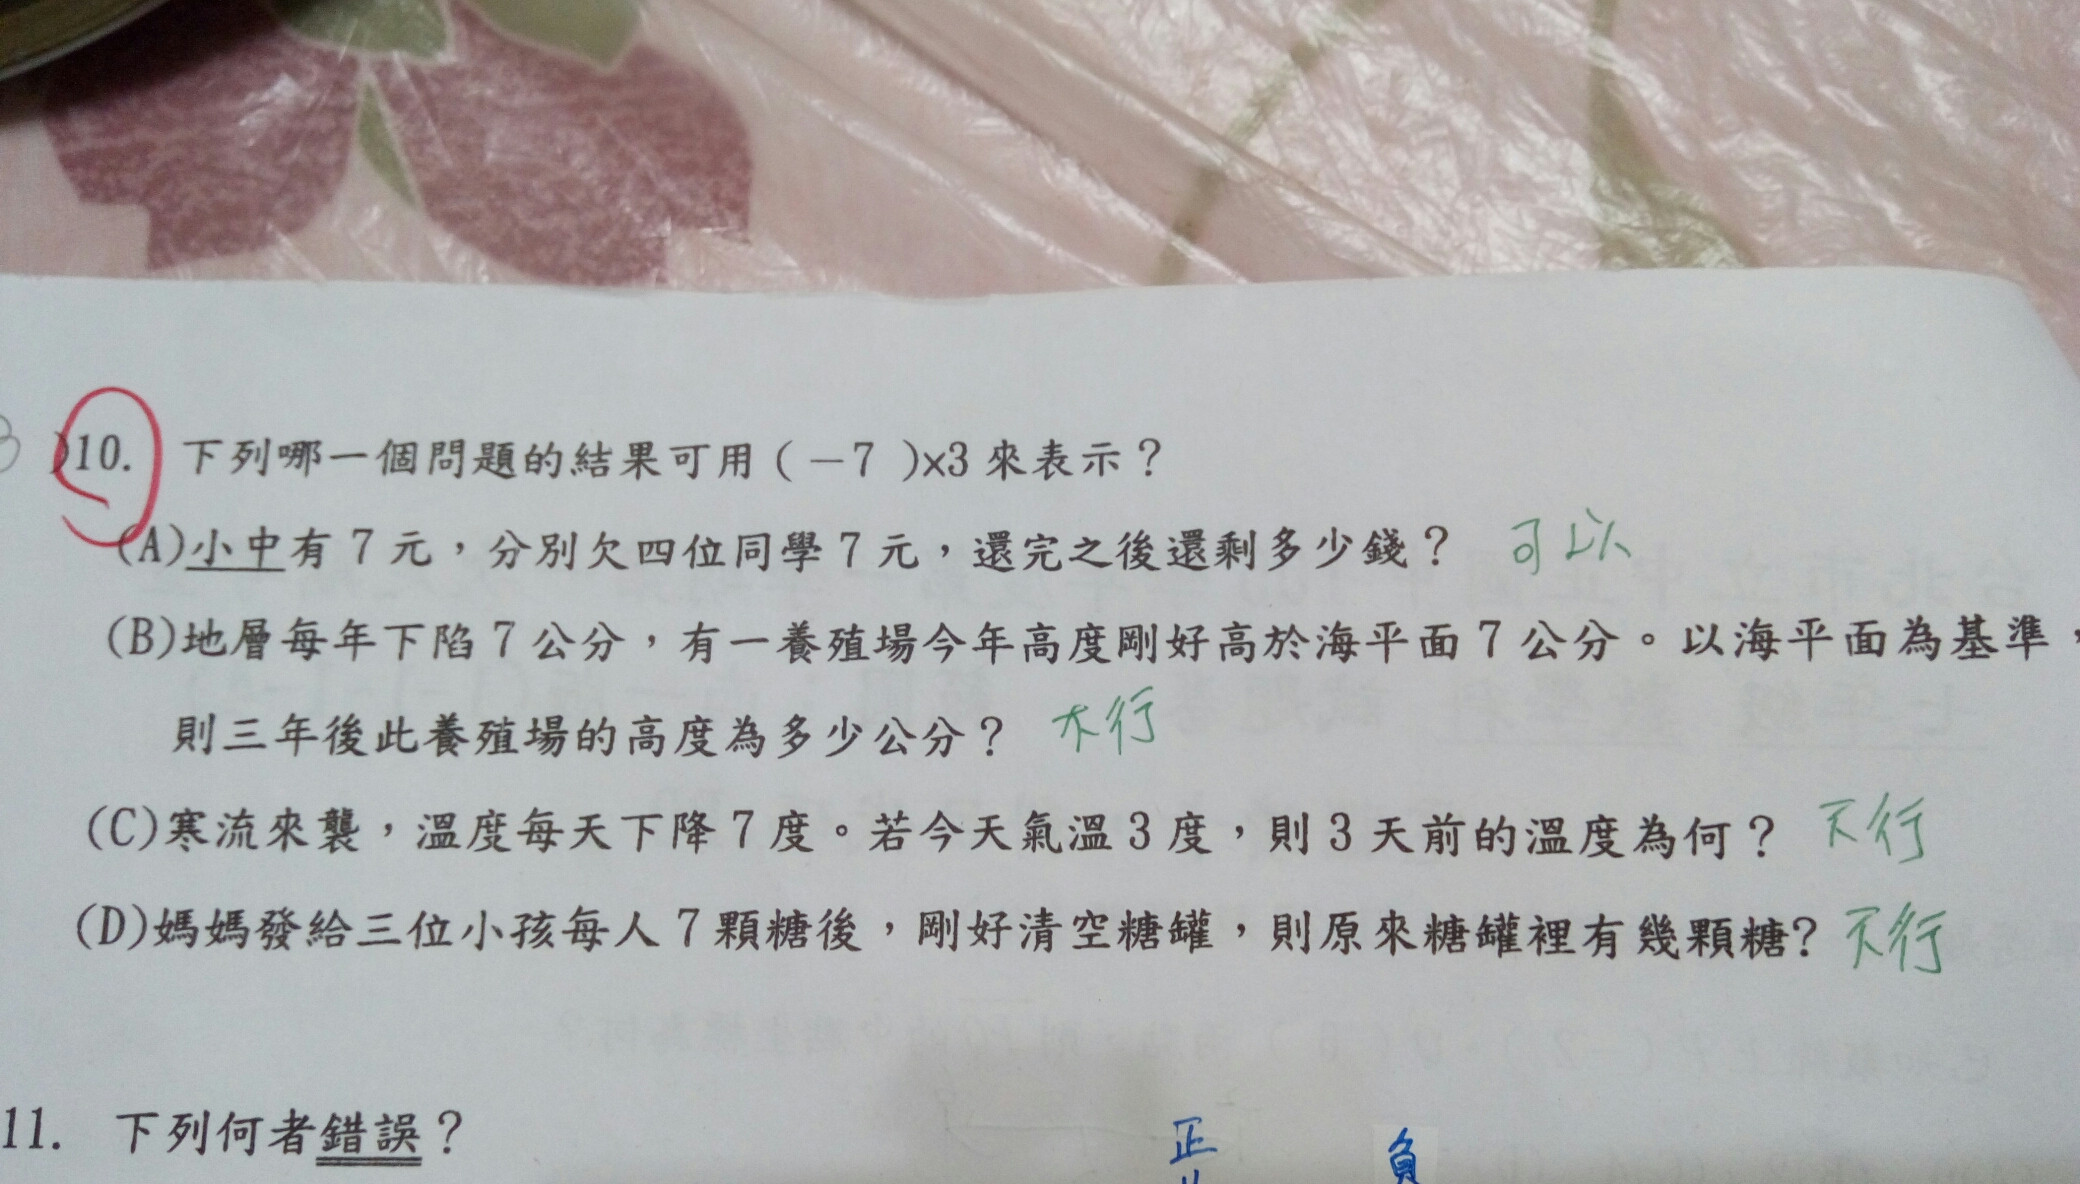 )10. 下列哪一個問題的結果可用(－7 )×3來表示？
(A)小中有7元，分別欠四位同學7元，還完之後還剩多少錢？ 可以
(B)地層每年下陷7公分，有一養殖場今年高度剛好高於海平面7公分。以海平面為基準，
則三年後此養殖場的高度為多少公分？ 不行
(C)寒流來襲，溫度每天下降7度。若今天氣溫3度，則3天前的溫度為何？ 不行
(D)媽媽發給三位小孩每人7顆糖後，剛好清空糖罐，則原來糖罐裡有幾顆糖? 不行
11. 下列何者錯誤？
正 負